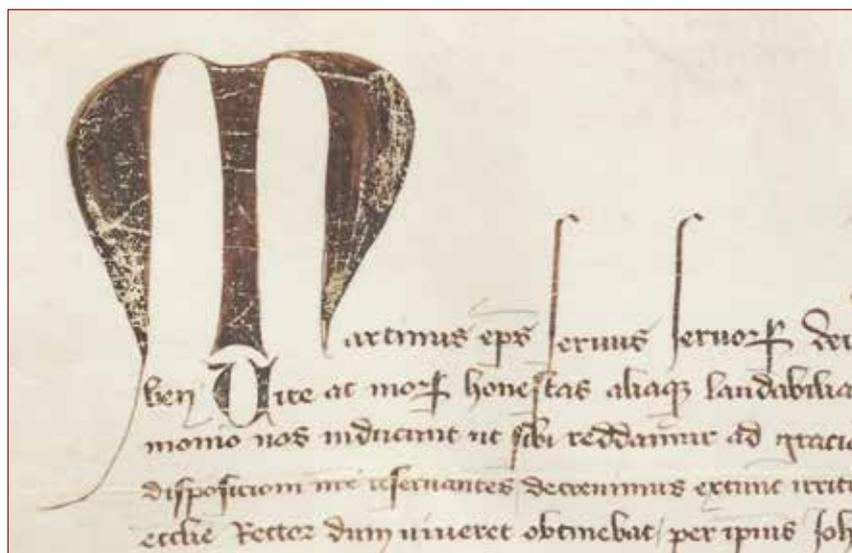 Martinus ep̄s seruus seruoꝝ dei
ben̄ Vite ac moꝝ honestas aliaqꝫ laudabilia
monio nos inducunt ut sibi reddamur ad gracia
disposicioni nr̄e reseruantes decreuimus extunc irrit
ecclīe Rector dum uiueret obtinebat / per ip̄ius Joh